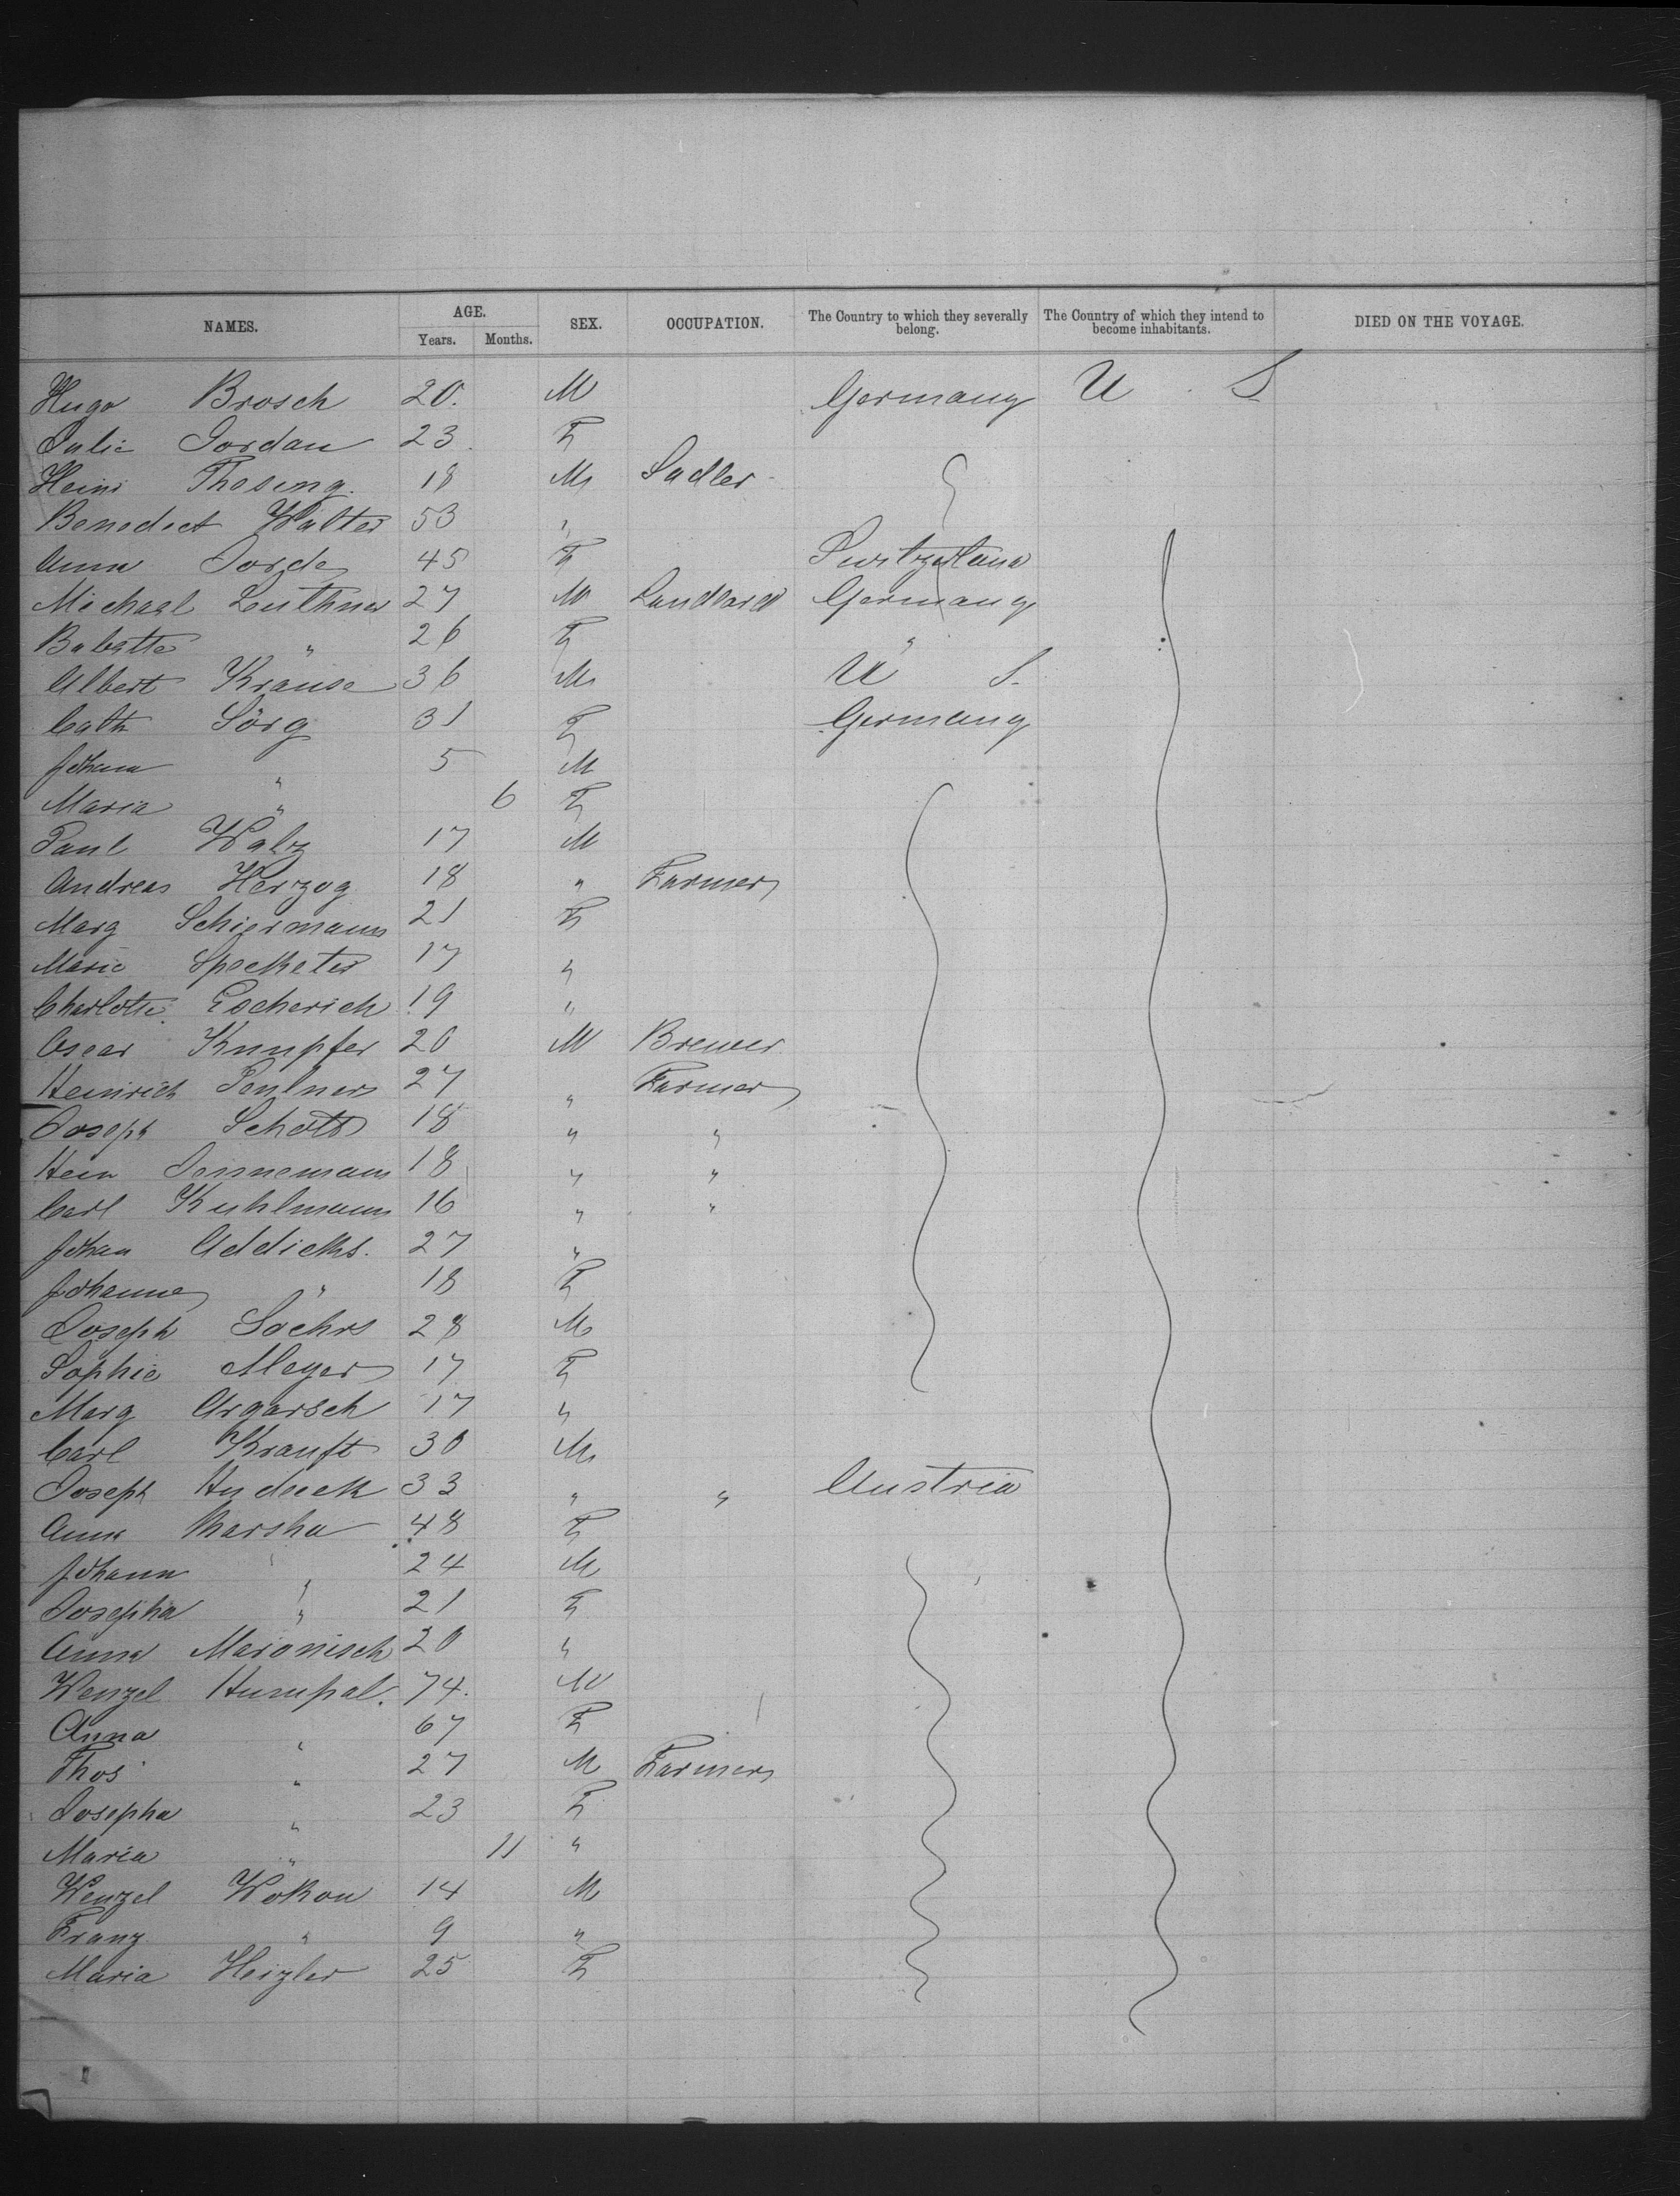 NAMES. AGE. SEX. OCCUPATION. The Country to which they severally belong. The Country of which they intend to become inhabitants. DIED ON THE VOYAGE.
Years. Months.
Hugo Brosch 20. M Germany U . S
Julie Jordan 23. F
Heinr Thosing. 18 M Sadler
Benedect Walter 53 "
Anna Jorde 45 F Switzerland
Michael Leuthner 27 M Landlord Germany
Babette " 26 F "
Albert Krause 36 M U S.
Cath Sörg 31 F Germany
Johann " 5 M
Maria " 6 F
Paul Walz 17 M
Andreas Herzog 18 " Farmer
Marg Schiermann 21 F
Marie Specketer 17 "
Charlotte Escherich 19 "
Oscar Knupfer 20 M Brewer
Heinrich 27 " Farmer
Joseph Schott 18 " "
Hein Jennemann 18 " "
Carl Kuhlmann 16 " "
Johan Addicks. 27 "
Johanne " 18 F
Joseph 28 M
Sophie Meyer 17 F
Marg Argarsch 17 "
Carl Krauft 30 M
Joseph Hudeck 33 " " Austria
Anna Marsha 48 F
Johann " 24 M
Josepha " 21 F
Anna Maronisch 20 "
Wenzel Humpal. 74. M
Anna " 67 F
Thos " 27 M Farmer
Josepha " 23 F
Maria " 11 "
Wenzel Wokon 14 M
Franz " 9 "
Maria Heizler 25 F